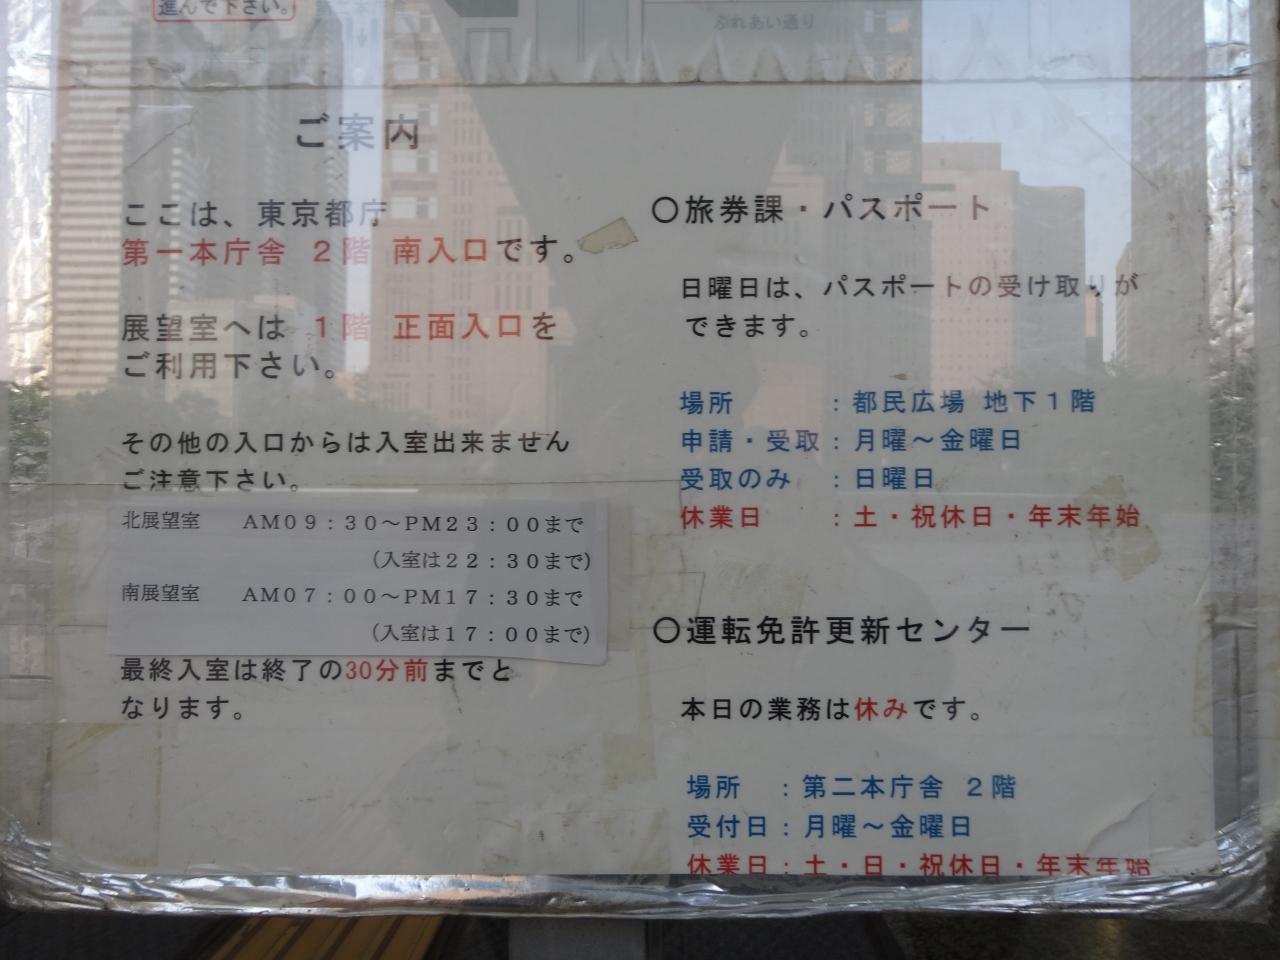 進んで下さい。
ふれあい通り
ご案内
ここは、東京都庁
第一本庁舎 ２階 南入口です。
展望室へは １階 正面入口を
ご利用下さい。
その他の入口からは入室出来ません
ご注意下さい。
北展望室 ＡＭ０９：３０～ＰＭ２３：００まで
（入室は２２：３０まで）
南展望室 ＡＭ０７：００～ＰＭ１７：３０まで
（入室は１７：００まで）
最終入室は終了の30分前までと
なります。
〇旅券課・パスポート
日曜日は、パスポートの受け取りが
できます。
場所 ：都民広場 地下１階
申請・受取：月曜～金曜日
受取のみ ：日曜日
休業日 ：土・祝休日・年末年始
〇運転免許更新センター
本日の業務は休みです。
場所 ：第二本庁舎 ２階
受付日：月曜～金曜日
休業日：土・日・祝休日・年末年始